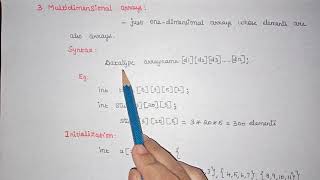 3 Multidimensional arrays:
- just one-dimensional arrays whose elements are
also arrays.
Syntax:
Datatype arrayname [d1][d2][d3]....[dn];
Eg:
int
int stu
stu[3][20][5] = 3*20*5 = 300 elements
Initialization:
int a[
{4,5,6,7} {8,9,10,11}